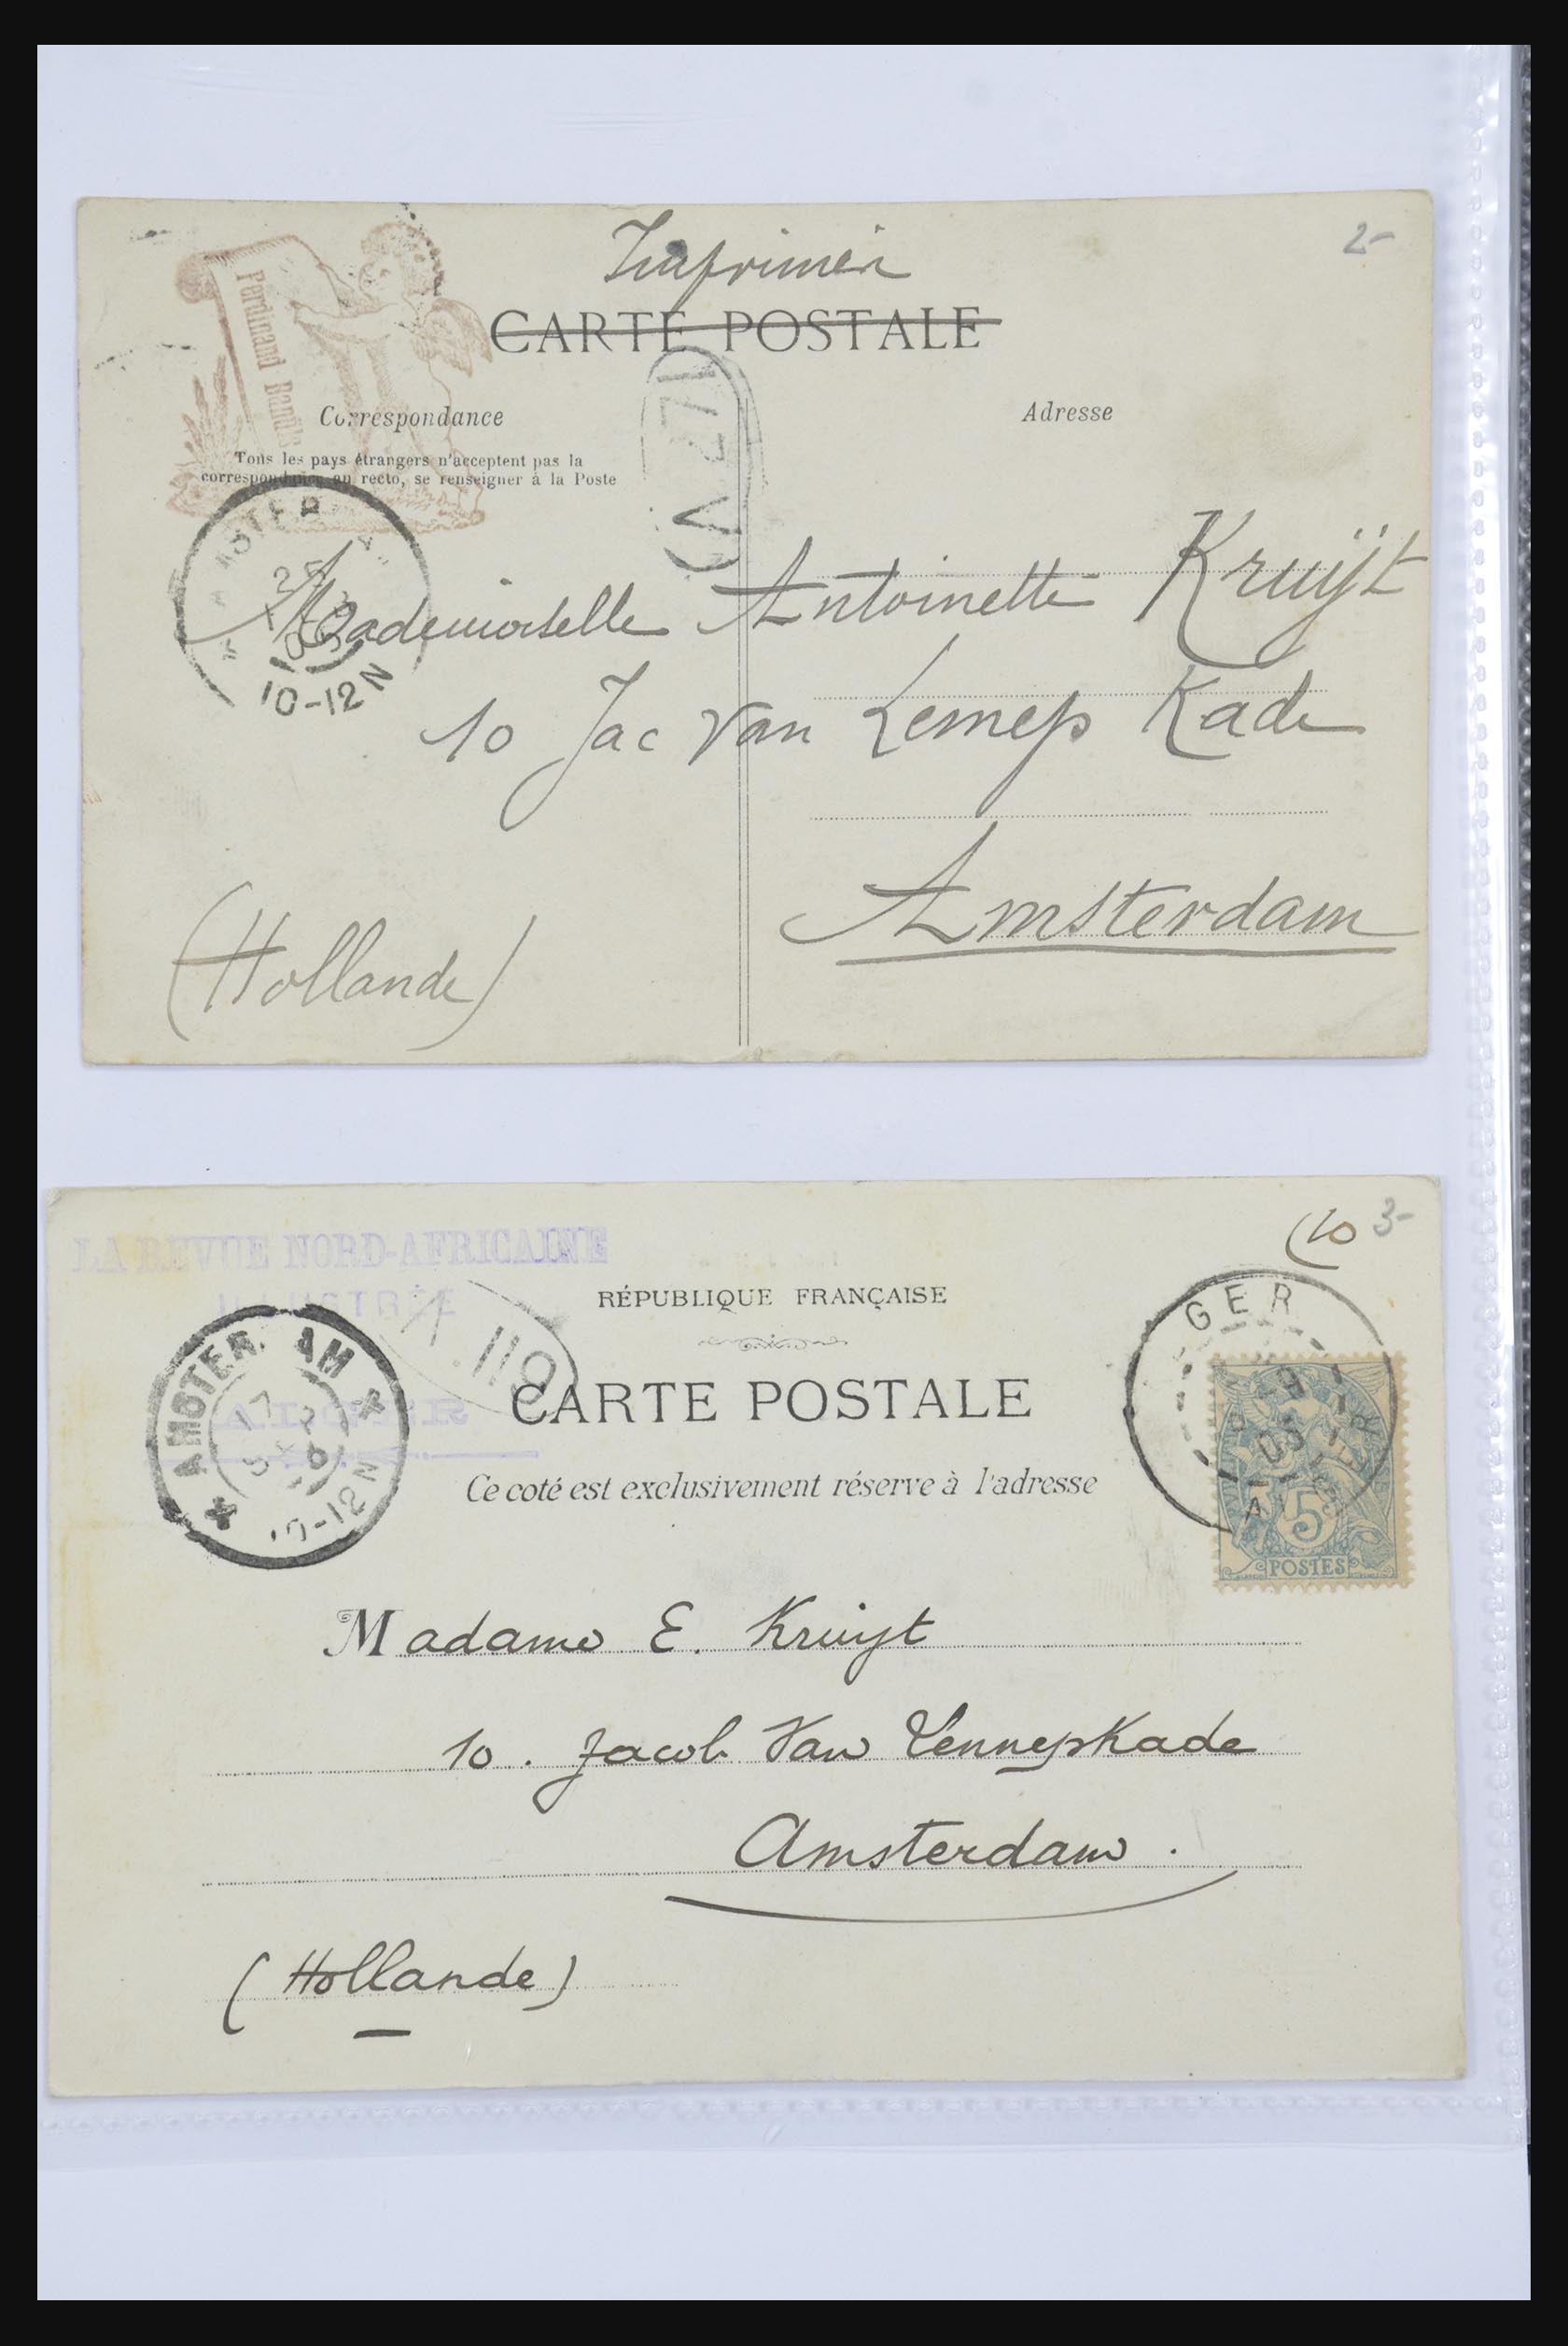 Imprimé
2-
CARTE POSTALE
Ferdinand
Correspondance
Adresse
Tous les pays étrangers n'acceptent pas la
correspondance au recto, se renseigner à la Poste
10-12N
Mademoiselle Antoinette Kruijt
10 Jac Van Lennep Kade
Amsterdam
(Hollande)
(10 3-
LA REVUE NORD-AFRICAINE
ILLUSTRÉE
RÉPUBLIQUE FRANÇAISE
GER
119
AMSTER AM
17
10-12N
CARTE POSTALE
Ce coté est exclusivement réserve à l'adresse
03
5
POSTES
Madame E. Kruijt
10. Jacob Van LennepKade
Amsterdam.
(Hollande)